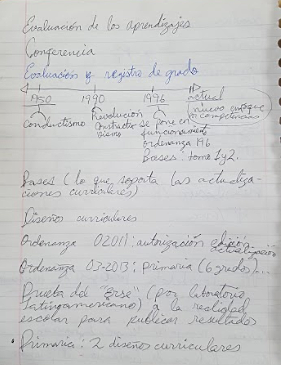 Evaluación de los aprendizajes
Conferencia
Evaluación y registro de grado
1950 1990 1996 Actual
nuevo enfoque
x competencias
Conductismo Revolución
Constructivismo Se pone en
funcionamiento
ordenanza 1'96
Bases: tomo 1 y 2.
Bases (lo que soporta las actualiza-
ciones curriculares)
Diseños curriculares
Ordenanza 02011: autorización
Ordenanza 03-2013: primaria (6 grados)...
Prueba del "Erse" (por laboratorio
latinoamericano) a la realidad
escolar para publicar resultados
Primaria: 2 diseños curriculares